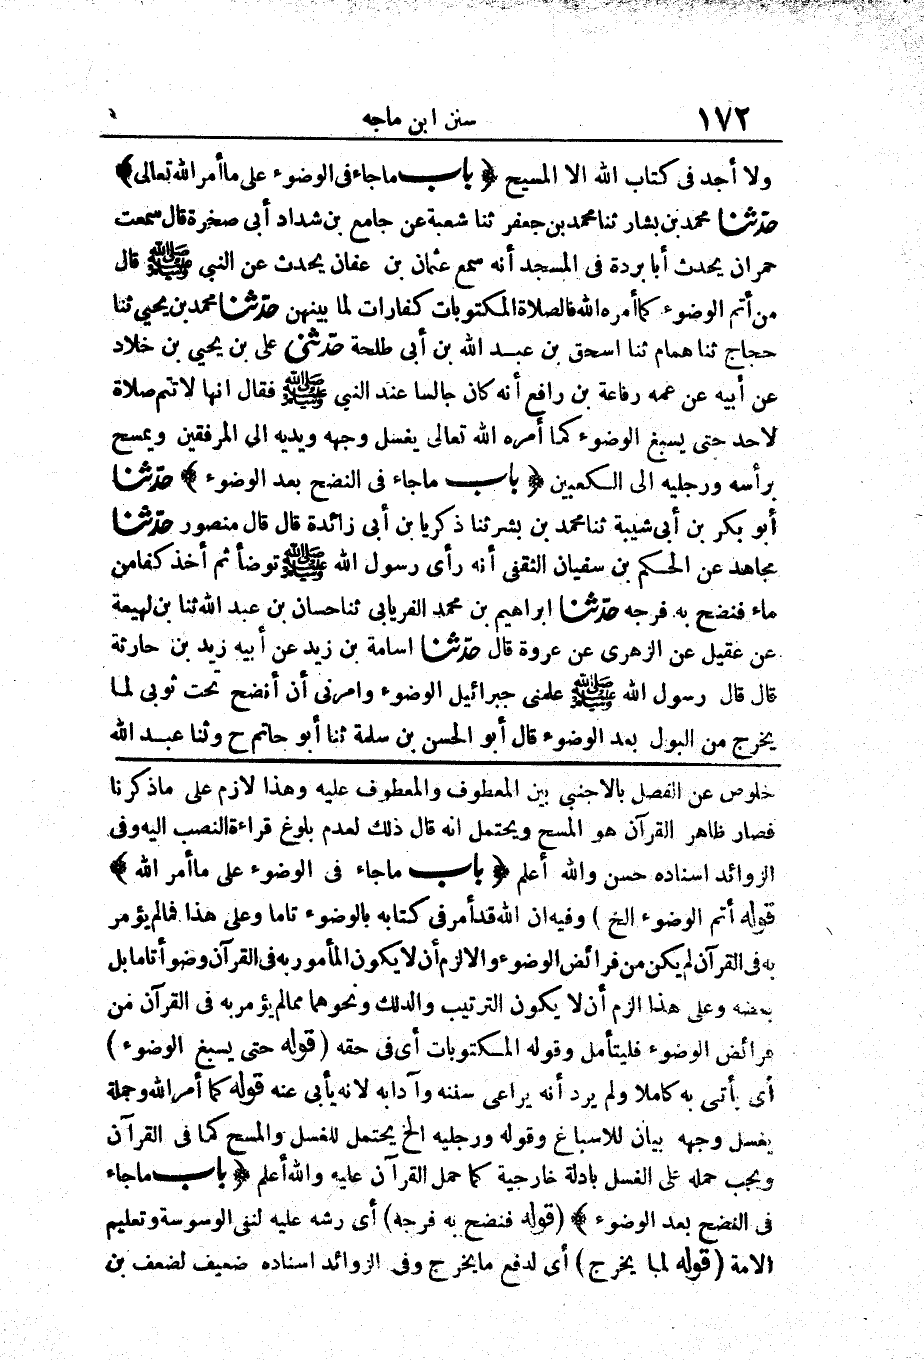 ١٧٢ سنن ابن ماجه
ولا أجد فى كتاب الله الا المسيح ﴿ باب ماجاء فى الوضوء على ماأمر الله تعالى ﴾
حدّثنا محمد بن بشار ثنا محمد بن جعفر ثنا شعبة عن جامع بن شداد أبى صخرة قال سمعت
حمران يحدث أبا بردة فى المسجد أنه سمع عثمان بن عفان يحدث عن النبي ﷺ قال
من أتم الوضوء كما أمره الله فالصلاة المكتوبات كفارات لما بينهن حدّثنا محمد بن يحيي ثنا
حجاج ثنا همام ثنا اسحق بن عبد الله بن أبى طلحة حدّثنى على بن يحيي بن خلاد
عن أبيه عن عمه رفاعة بن رافع أنه كان جالسا عند النبي ﷺ فقال انها لا تتم صلاة
لاحد حتى يسبغ الوضوء كما أمره الله تعالى يغسل وجهه ويديه الي المرفقين ويمسح
برأسه ورجليه الى الكعبين ﴿ باب ماجاء فى النضح بعد الوضوء ﴾ حدّثنا
أبو بكر بن أبى شيبة ثنا محمد بن بشر ثنا ذكريا بن أبى زائدة قال قال منصور حدّثنا
مجاهد عن الحكم بن سفيان الثقفى أنه رأى رسول الله ﷺ توضأ ثم أخذ كفا من
ماء فنضح به فرجه حدّثنا ابراهيم بن محمد الفريابي ثنا حسان بن عبد الله ثنا بن لهيعة
عن عقيل عن الزهرى عن عروة قال حدّثنا اسامة بن زيد عن أبيه زيد بن حارثة
قال قال رسول الله ﷺ علمنى جبرائيل الوضوء وامرنى أن أنضح تحت ثوبى لما
يخرج من البول بعد الوضوء قال أبو الحسن بن سلمة ثنا أبو حاتم ح وثنا عبد الله
خلوص عن الفصل بالاجنبي بين المعطوف والمعطوف عليه وهذا لازم على ماذكرنا
فصار ظاهر القرآن هو المسح ويحتمل انه قال ذلك لعدم بلوغ قراءة النصب اليه وفى
الزوائد اسناده حسن والله أعلم ﴿ باب ماجاء فى الوضوء على ماأمر الله ﴾
قوله أتم الوضوء الخ ) وفيه ان الله قد أمر فى كتابه بالوضوء تاما وعلى هذا فمالم يؤمر
به فى القرآن لم يكن من فرائض الوضوء والا لزم أن لا يكون المأمور به فى القرآن وضوأ تاما بل
بعضه وعلى هذا الزم أن لا يكون الترتيب والدلك ونحوهما ممالم يؤمر به فى القرآن من
فرائض الوضوء فليتأمل وقوله المكتوبات أى فى حقه ( قوله حتى يسبغ الوضوء )
أى يأتى به كاملا ولم يرد أنه يراعى سننه وآدابه لانه يأبى عنه قوله كما أمر الله وجملة
يغسل وجهه بيان للاسباغ وقوله ورجليه الخ يحتمل للغسل والمسح كما فى القرآن
ويجب حمله على الغسل بادلة خارجية كما حمل القرآن عليه والله أعلم ﴿ باب ماجاء
فى النضح بعد الوضوء ﴾ (قوله فنضح به فرجه) أى رشه عليه لنفى الوسوسة وتعليم
الامة ( قوله لما يخرج ) أى لدفع مايخرج وفى الزوائد اسناده ضعيف لضعف بن